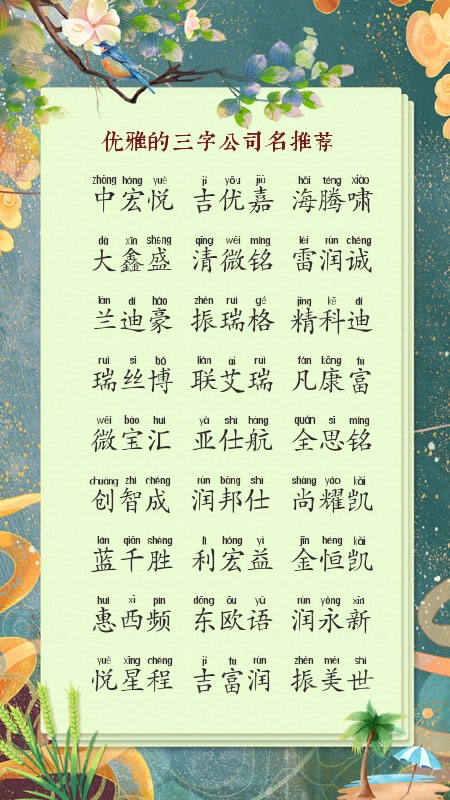 优雅的三字公司名推荐
zhōng hóng yuè jí yōu jiā hǎi téng xiào
中宏悦 吉优嘉 海腾啸
dà xīn shèng qīng wēi míng léi rùn chéng
大鑫盛 清微铭 雷润诚
lán dí háo zhèn ruì gé jīng kē dí
兰迪豪 振瑞格 精科迪
ruì sī bó lián ài ruì fán kāng fù
瑞丝博 联艾瑞 凡康富
wēi bǎo huì yà shì háng quán sī míng
微宝汇 亚仕航 全思铭
chuàng zhì chéng rùn bāng shì shàng yào kǎi
创智成 润邦仕 尚耀凯
lán qiān shèng lì hóng yì jīn héng kǎi
蓝千胜 利宏益 金恒凯
huì xī pín dōng ōu yǔ rùn yǒng xīn
惠西频 东欧语 润永新
yuè xīng chéng jí fù rùn zhèn měi shì
悦星程 吉富润 振美世